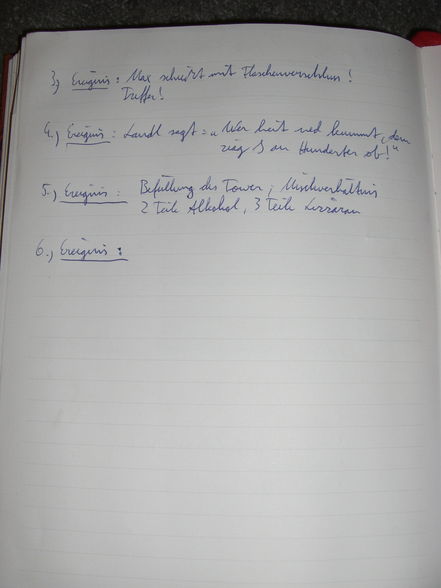 3.) Ereignis: Max schießt mit Flaschenverschluss!
Treffer!
4.) Ereignis: Landl sagt: „Wer heit ned kummt, dem
ziag I an Hunderter ob!"
5.) Ereignis: Befüllung des Tower; Mischverhältnis
2 Teile Alkohol, 3 Teile
6.) Ereignis: